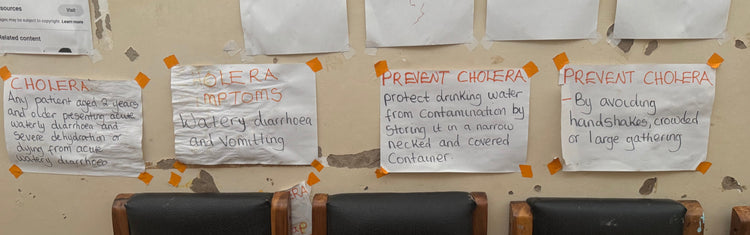 sources
Visit
Images may be subject to copyright. Learn more
Related content
CHOLERA.
Any patient aged 2 years
and older presenting acute
waterly diarrhoea and
severe dehydration or
dying from acute
watery diarrhoea
OLERA
MPTOMS
Watery diarrhoea
and Vomitting
PREVENT CHOLERA
protect drinking water
from contamination by
storing it in a narrow
necked and covered
container.
PREVENT CHOLERA
- By avoiding
handshakes, crowded
or large gathering
RA